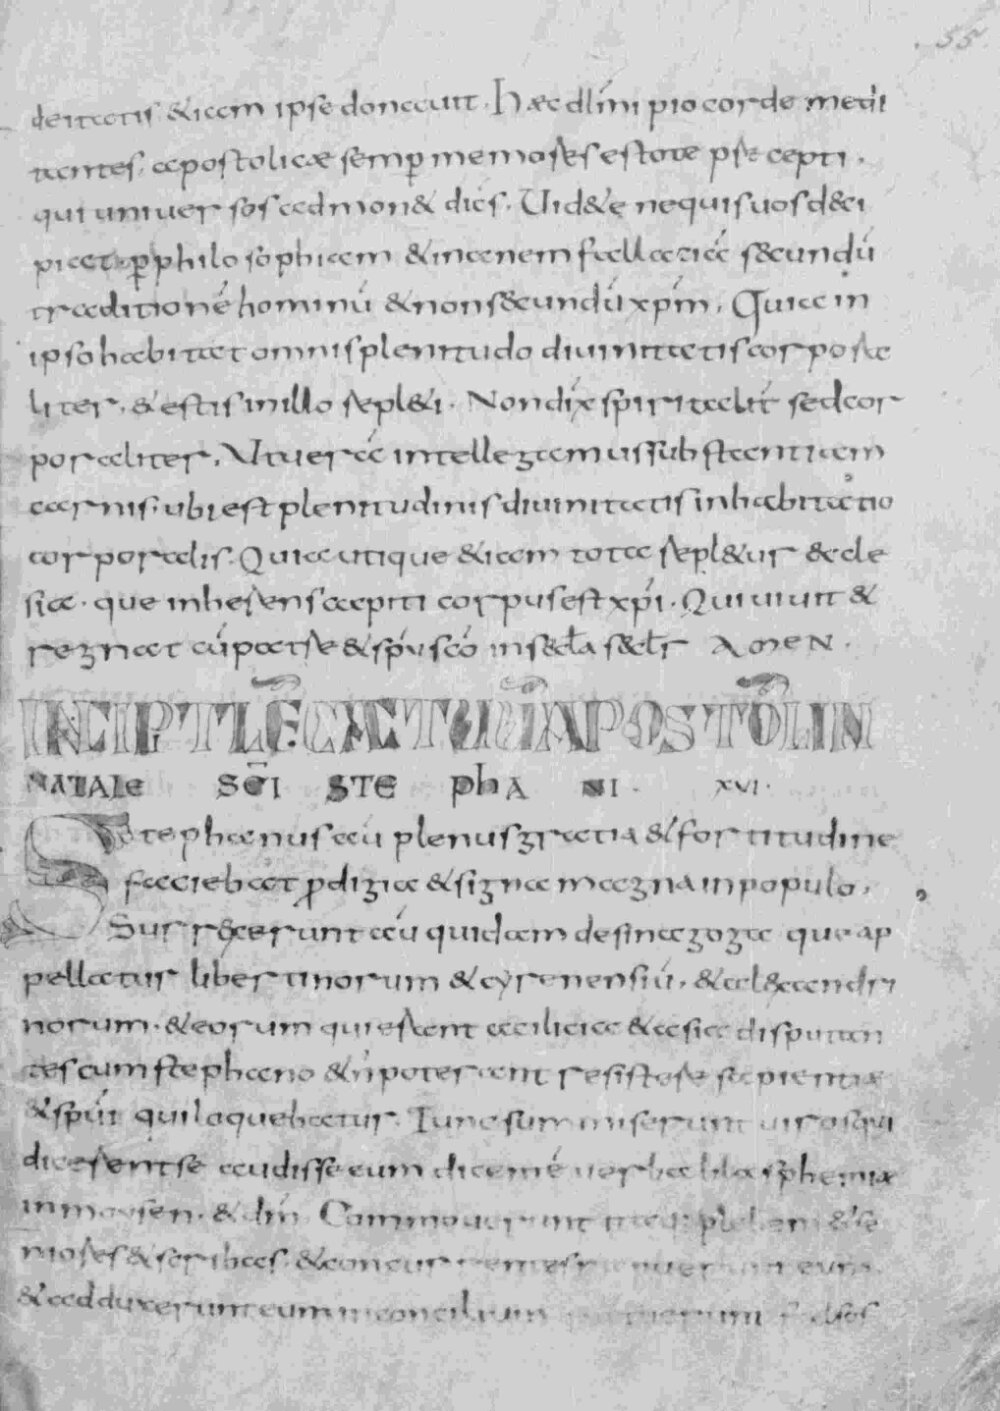 55
deitatis & iam ipse donavit. Haec dlimi pio corde medi
tantes, apostolicae semper memores estote praecepti,
qui univer sos admon& dicens. Uid&e nequis uos d&ci
piat p philosophiam & inanem fallaciā s&cundū
traditionē hominū & non s&cundū xpm̄. Quia in
ipso habitat omnis plenitudo divinitatis corpora
liter, & estis in illo repl&i. Non dix̄ spiritalit̄ sed cor
poraliter, Ut uerā intellegamus substantiam
carnis; ubi est plenitudinis divinitatis inhabitatio
corporalis. Quia utique & iam tota repl&ur &cle
sia. que inherens capiti corpus est xpi. Qui uiuit &
regnat cū patre & spu sco in s&cla s&clr AMEN.
INCIPT LEC ACTUŪ APOSTOLI IN
NATALE SCI STEPHANI. XVI.
Stephanus aū plenus gratia & fortitudine
faciebat prodigia & signa magna in populo,
Surrexerunt aū quidam de sinagoga que ap
pellatur libertinorum & cyrenensiū, & al&andri
norum. & eorum qui erant a cilicia & asia disputan
tes cum stephano & n̄ poterant resistere sapientiae
& spui qui loquebatur. Tunc summiserunt uiros qui
dicerent se audisse eum dicentē uerba blasphemiae
in moysen. & dm̄ Commouerunt itaq; plebem & se
niores & scribas. & concurrentes rapuerunt eum.
& adduxerunt eum in concilium falsos